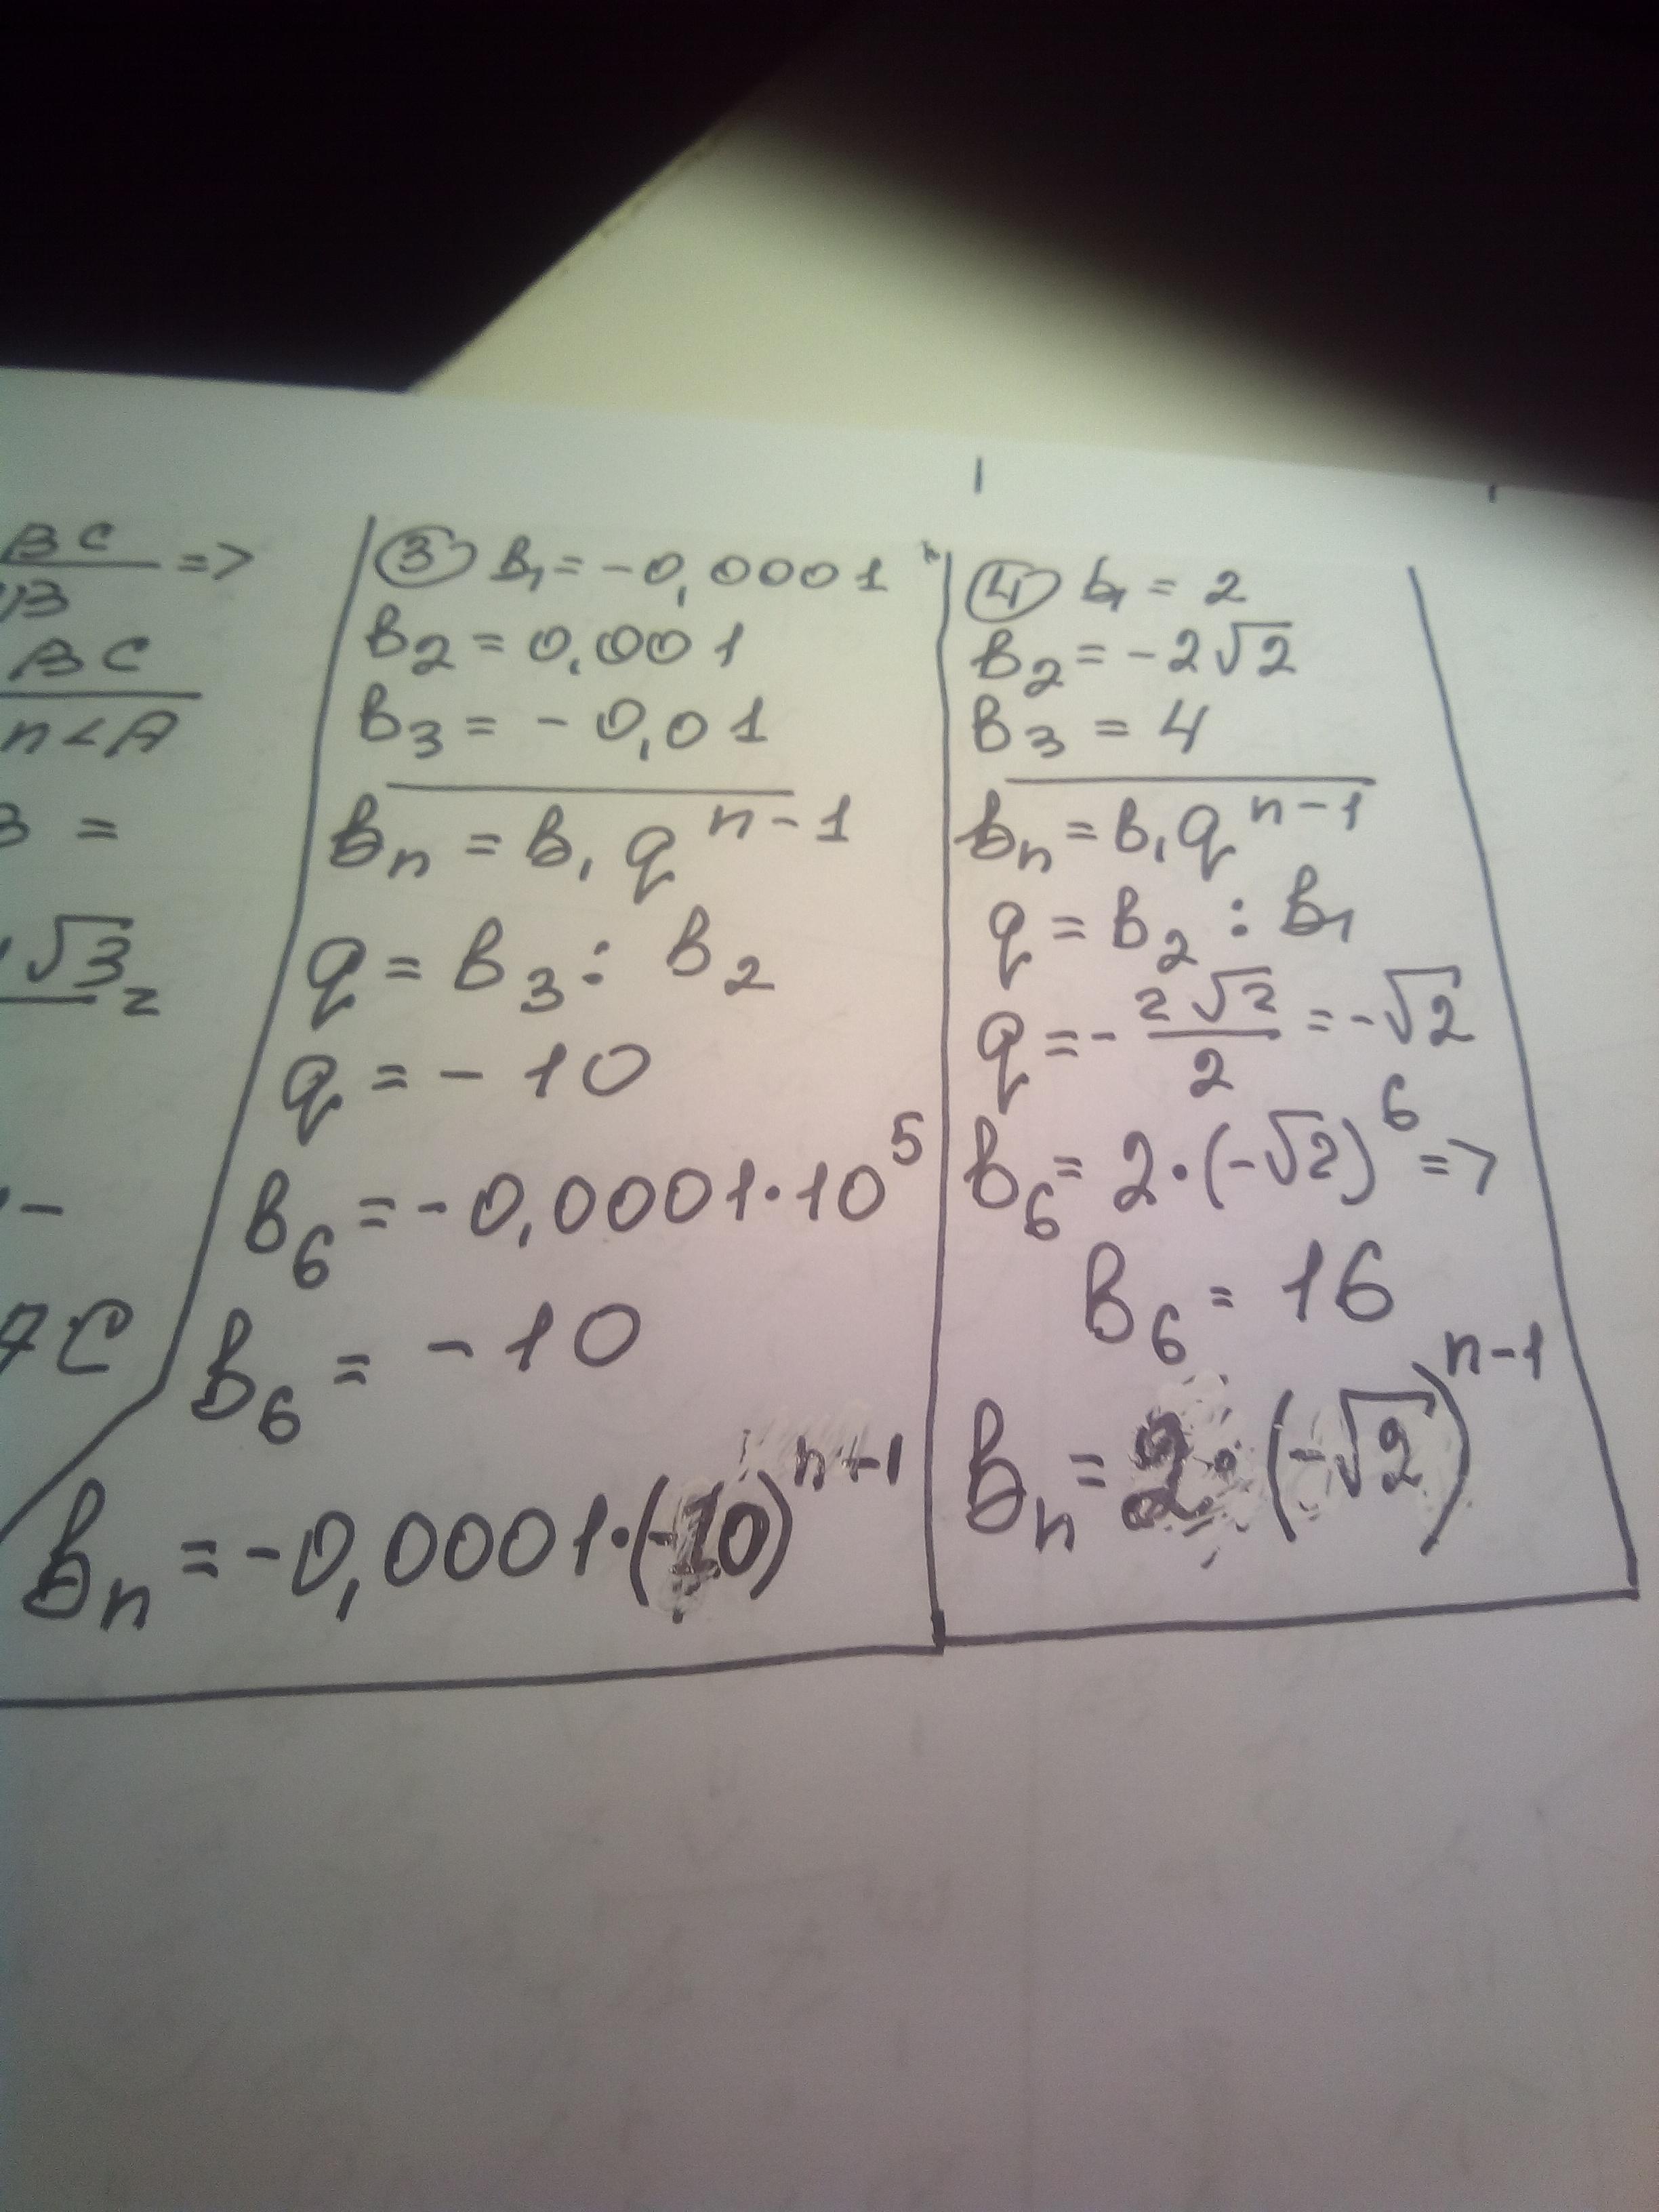 BC =>
BC
n<A
3 =
√3 =
-
③ B₁ = -0,0001
B₂ = 0,001
B₃ = - 0,01
Bn = B₁ q^(n-1)
q = B₃ : B₂
q = - 10
B₆ = -0,0001·10⁵
B₆ = -10
Bn = -0,0001·(-10)^(n+1)
④ b₁ = 2
B₂ = -2√2
B₃ = 4
Bn = B₁ q^(n-1)
q = B₂ : B₁
q = - 2√2/2 = -√2
B₆ = 2·(-√2)⁶ =>
B₆ = 16
Bn = 2·(-√2)^(n-1)